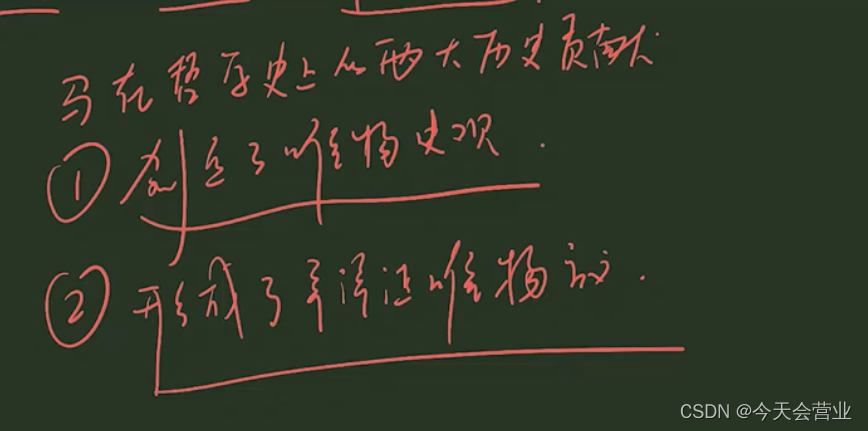 马在哲学史上的两大历史贡献
① 创立了唯物史观.
② 形成了辩证唯物论.
CSDN @今天会营业